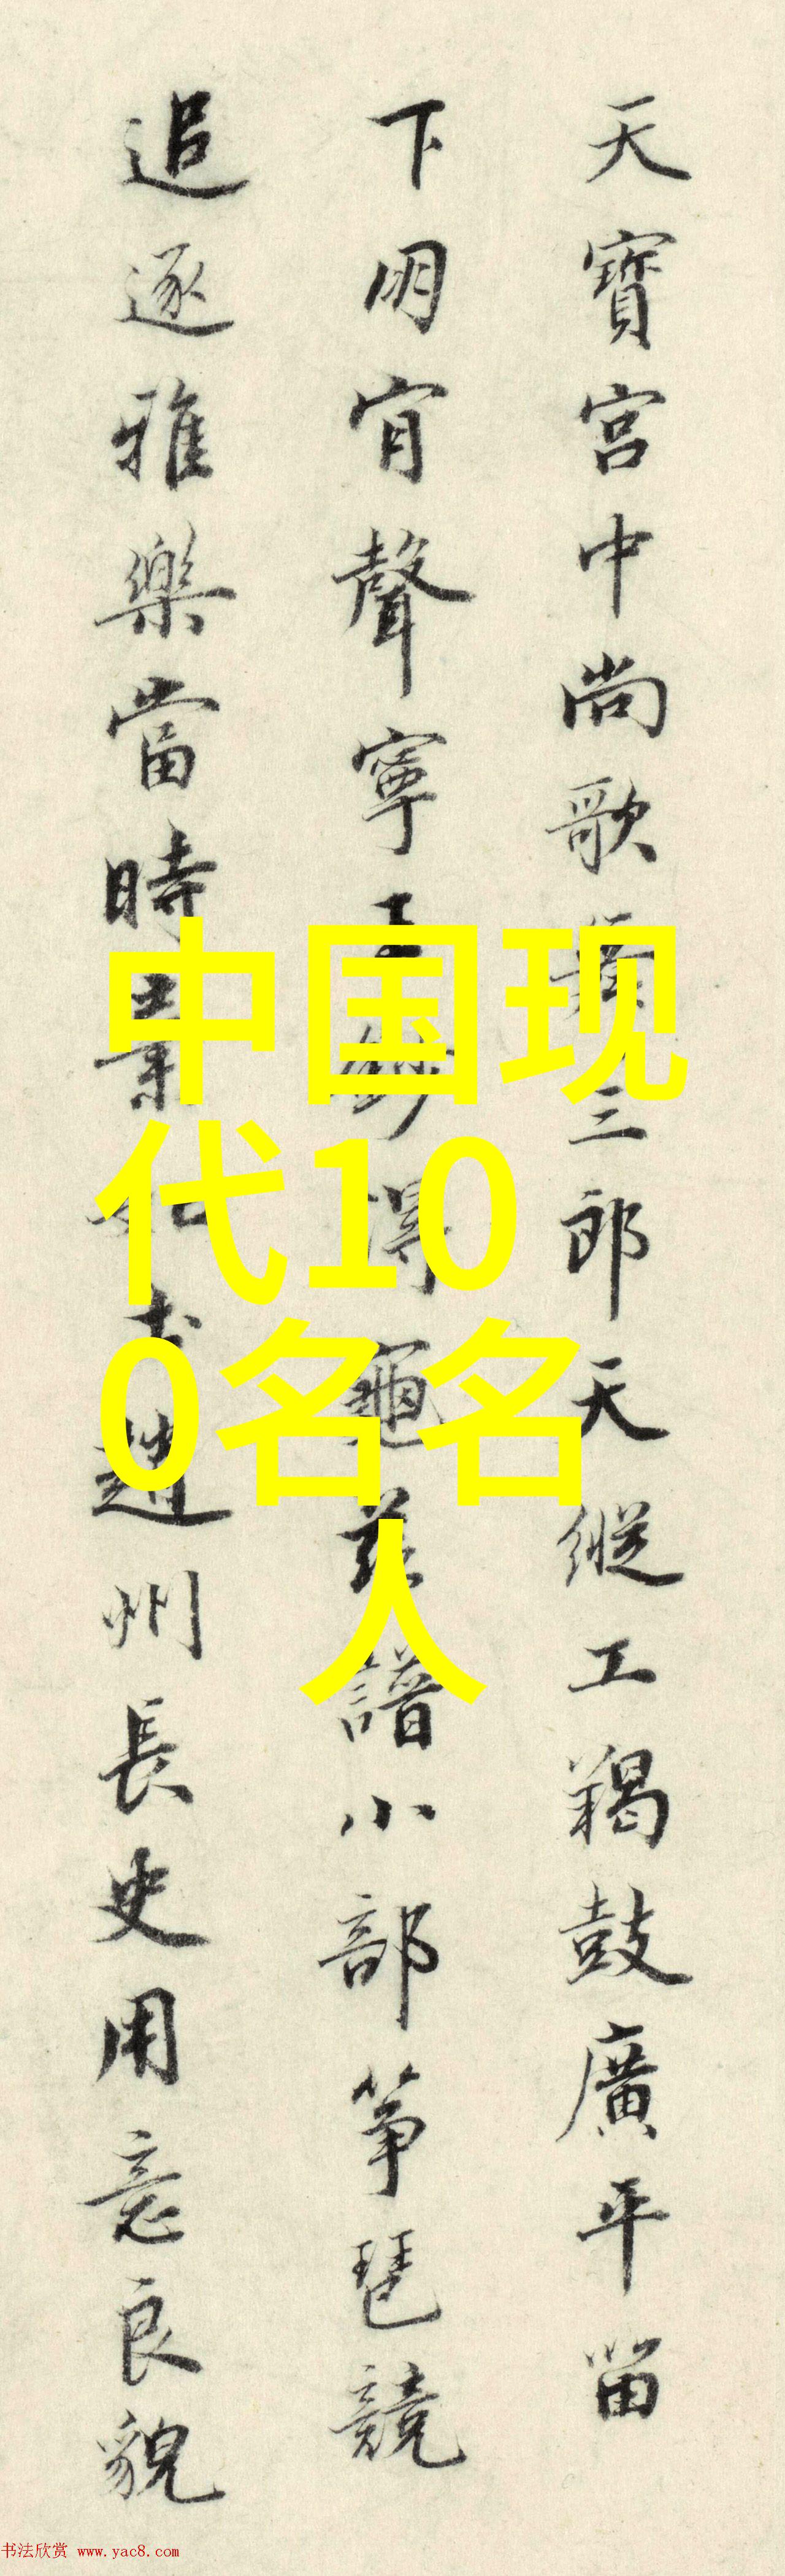 天寶宮中尚歌舞三郎天縱工羯鼓廣平留
下明宵聲寧王得龜茲譜小部箏琶競
追逐雅樂當時棄如土趙州長史用意良貌
中国现
代10
0名名
人
书法欣赏 www.yac8.com